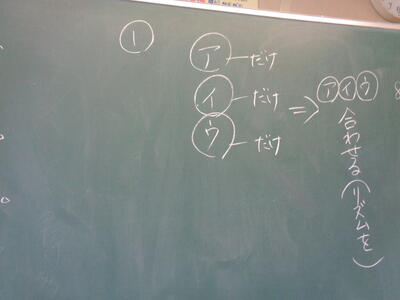 ①
㋐ーだけ
㋑ーだけ
㋒ーだけ
⇒㋐㋑㋒
合わせる(リズムを)